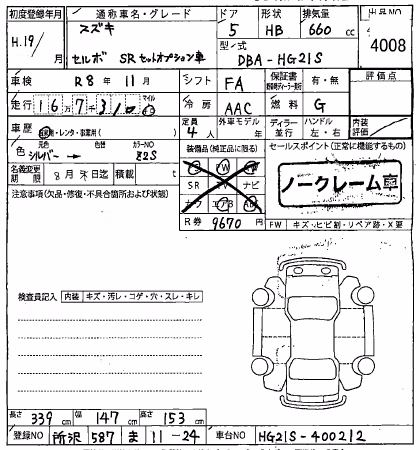 初度登録年月 通称車名・グレード ドア 形状 排気量 出品NO
H.19/ 月 スズキ 5 HB 660 cc 4008
セルボ SRセットオプション車 型/式 DBA-HG21S
車検 R8年 11月 シフト FA 保証書 有・無 評価点
走行 マイル 冷房 AAC 燃料 G
車歴 レンタ・事業用 定員 4人 外車モデル 年 ディーラー 並行 ハンドル 左・右 内装評価
色 元色 シルバー → 色替 カラーNO Z2S 装備品(純正品に限る) セールスポイント(正常に機能するもの)
名義変更期限 8月末日迄 積載 t ノークレーム車
SR ナビ
エアB
注意事項(欠品・修復・不具合箇所および状態)
R券 9670円 FW キズ・ヒビ割・リペア跡・X要
検査員記入 内装 キズ・汚レ・コゲ・穴・スレ・キレ
長さ 339cm 幅 147cm 高さ 153cm
登録NO 所沢 587 ま 11-24 車台NO HG21S-400212